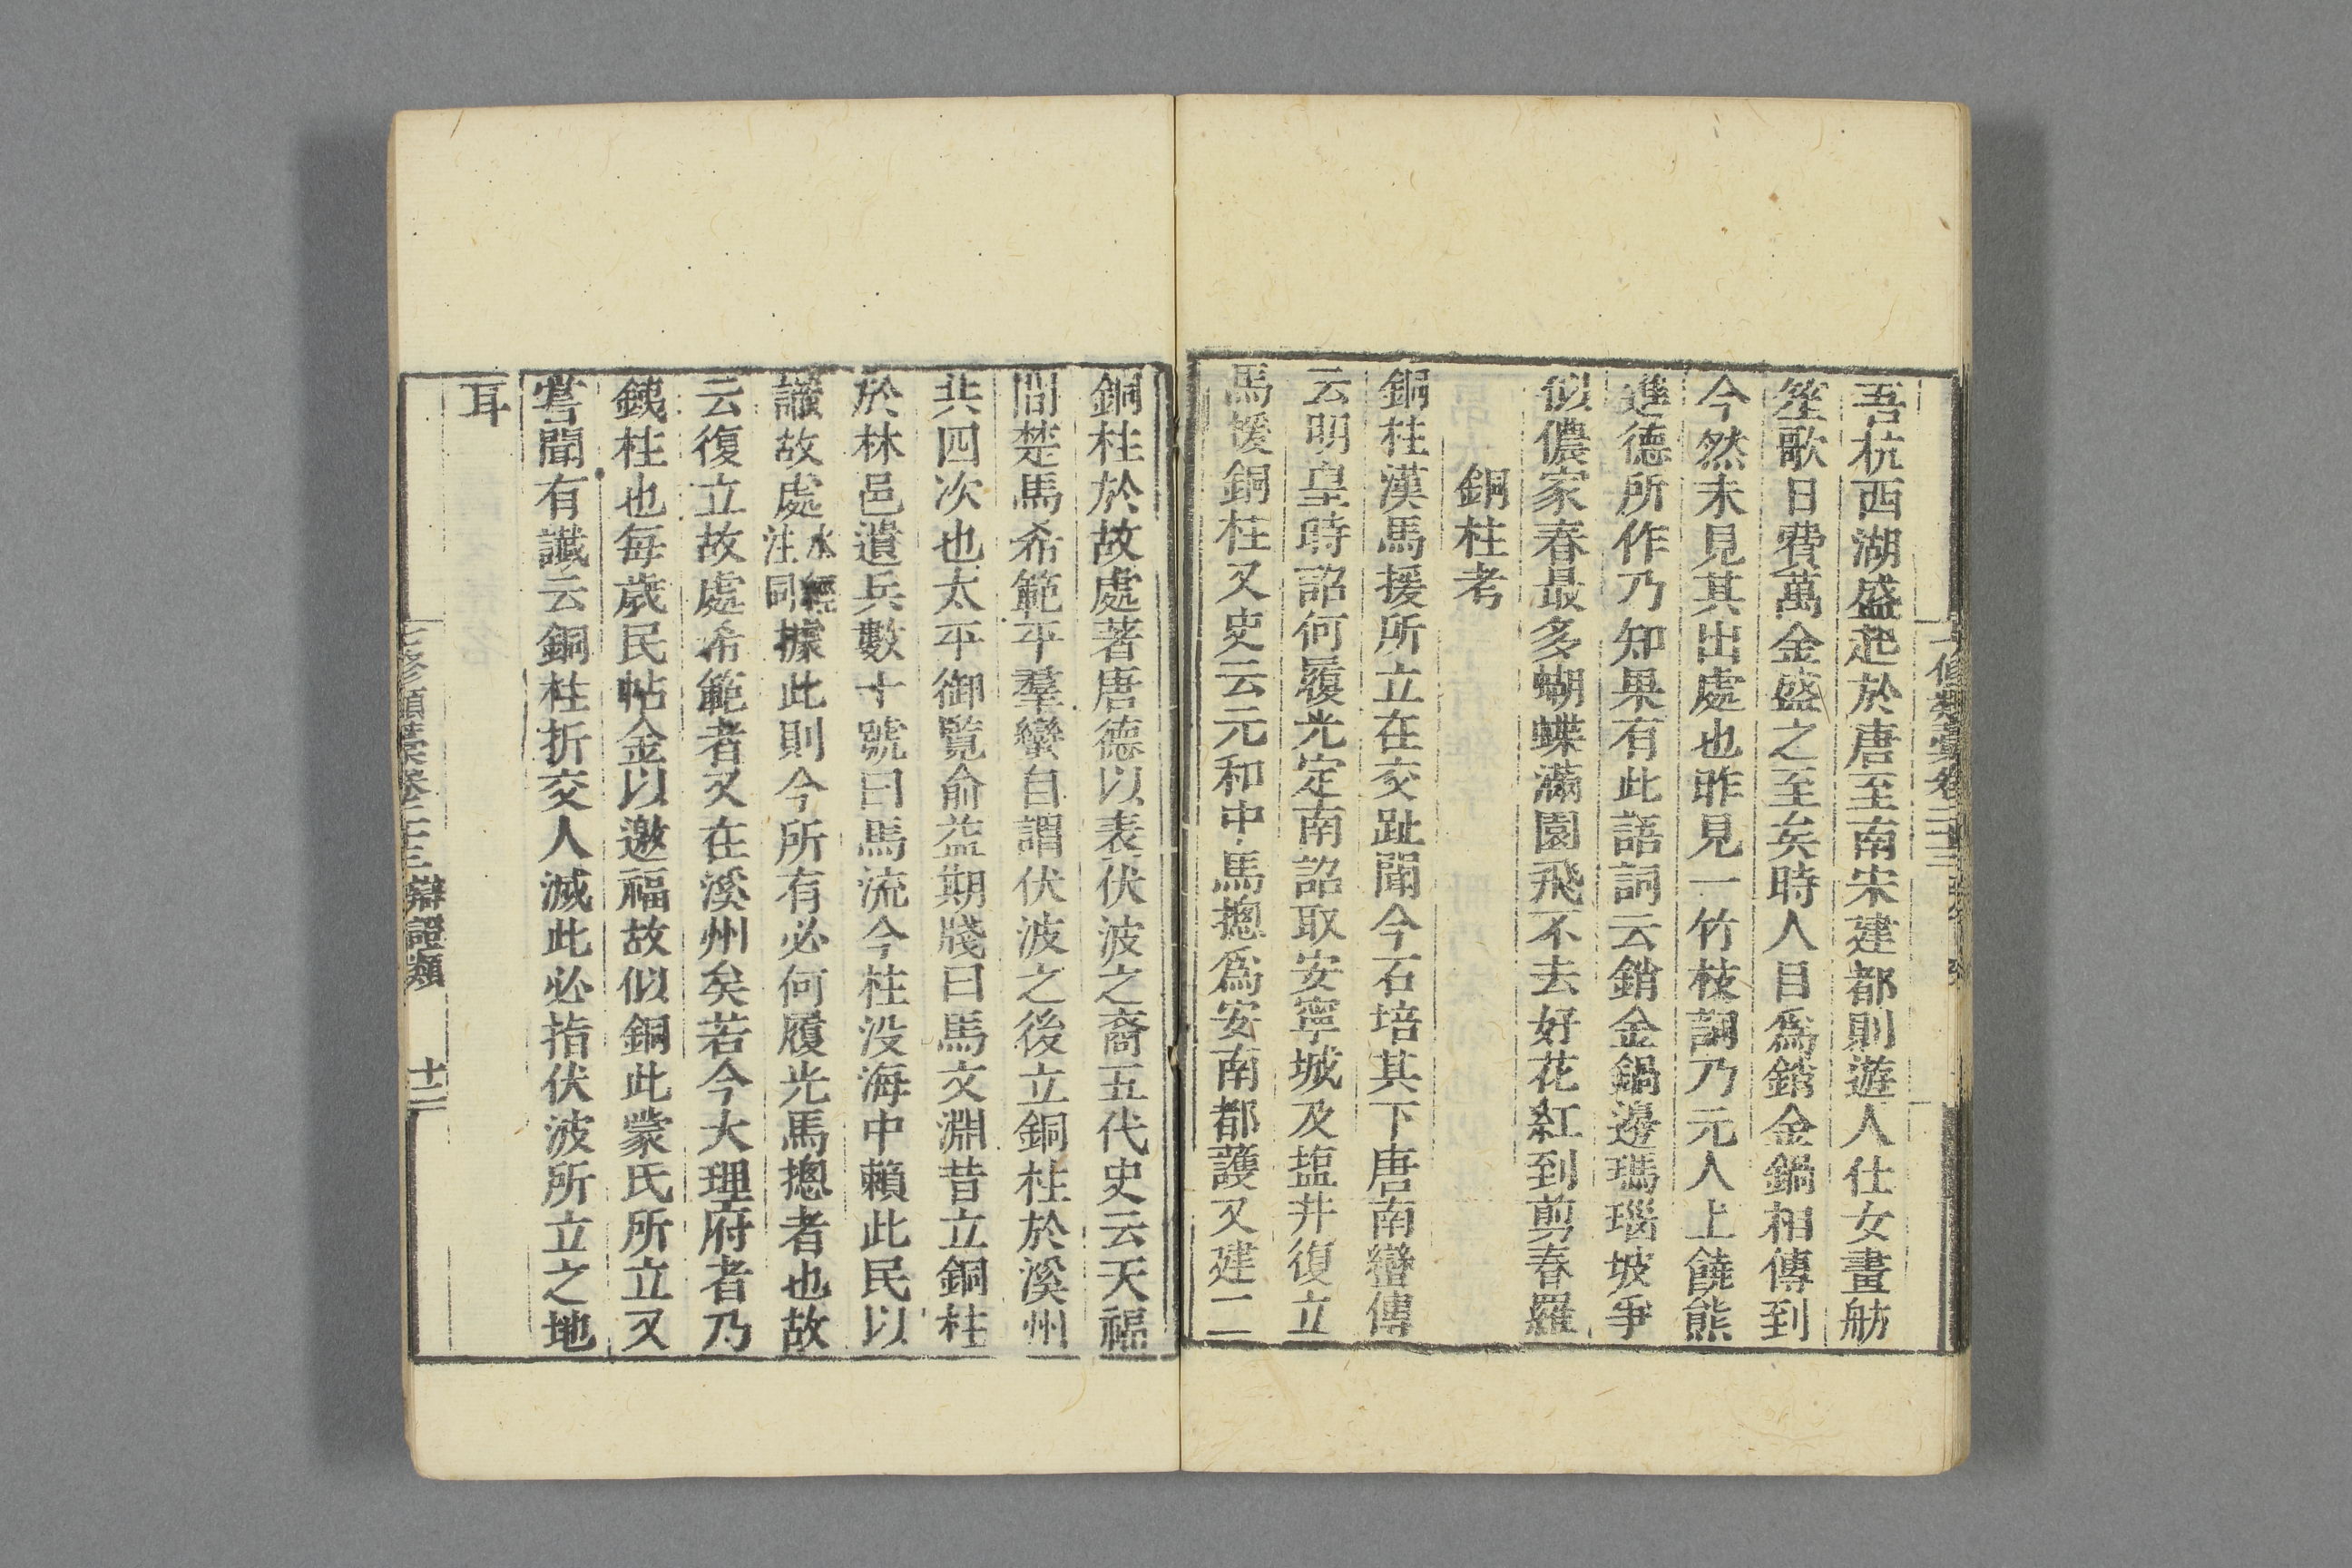 吾杭西湖盛起於唐至南宋建都則遊人仕女畫舫
笙歌日費萬金盛之至矣時人目爲銷金鍋相傳到
今然未見其出處也昨見一竹枝詞乃元人上饒熊
進德所作乃知果有此語詞云銷金鍋邊瑪瑙坡爭
似儂家春最多蝴蝶滿園飛不去好花紅到剪春羅
銅柱考
銅柱漢馬援所立在交趾聞今石培其下唐南蠻傳
云明皇時詔何履光定南詔取安寧城及塩井復立
馬援銅柱又史云元和中馬揔爲安南都護又建二
銅柱於故處著唐德以表伏波之裔五代史云天福
間楚馬希範平羣蠻自謂伏波之後立銅柱於溪州
共四次也太平御覽俞益期牋曰馬文淵昔立銅柱
於林邑遺兵數十號曰馬流今柱没海中賴此民以
識故處水經注同據此則今所有必何履光馬揔者也故
云復立故處希範者又在溪州矣若今大理府者乃
鐵柱也每歲民帖金以邀福故似銅此蒙氏所立又
嘗聞有讖云銅柱折交人滅此必指伏波所立之地
耳
七修類藁卷二十三 辯證類 十二